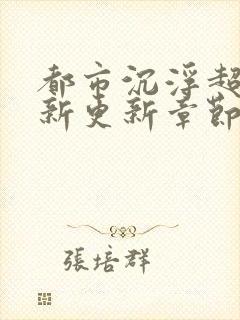 都市沉浮超
新更新章節
張培群